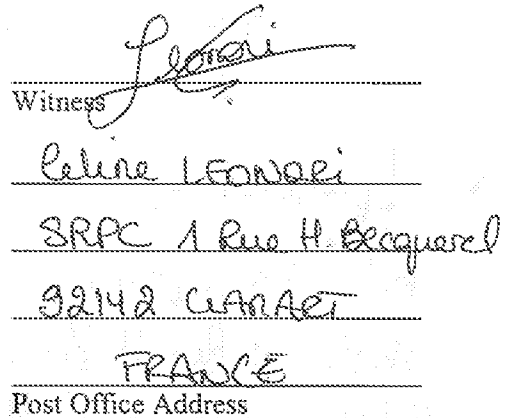 Leonori
Witness
Celine LEONORI
SRPC 1 Rue H. Becquerel
92142 CLAMART
FRANCE
Post Office Address